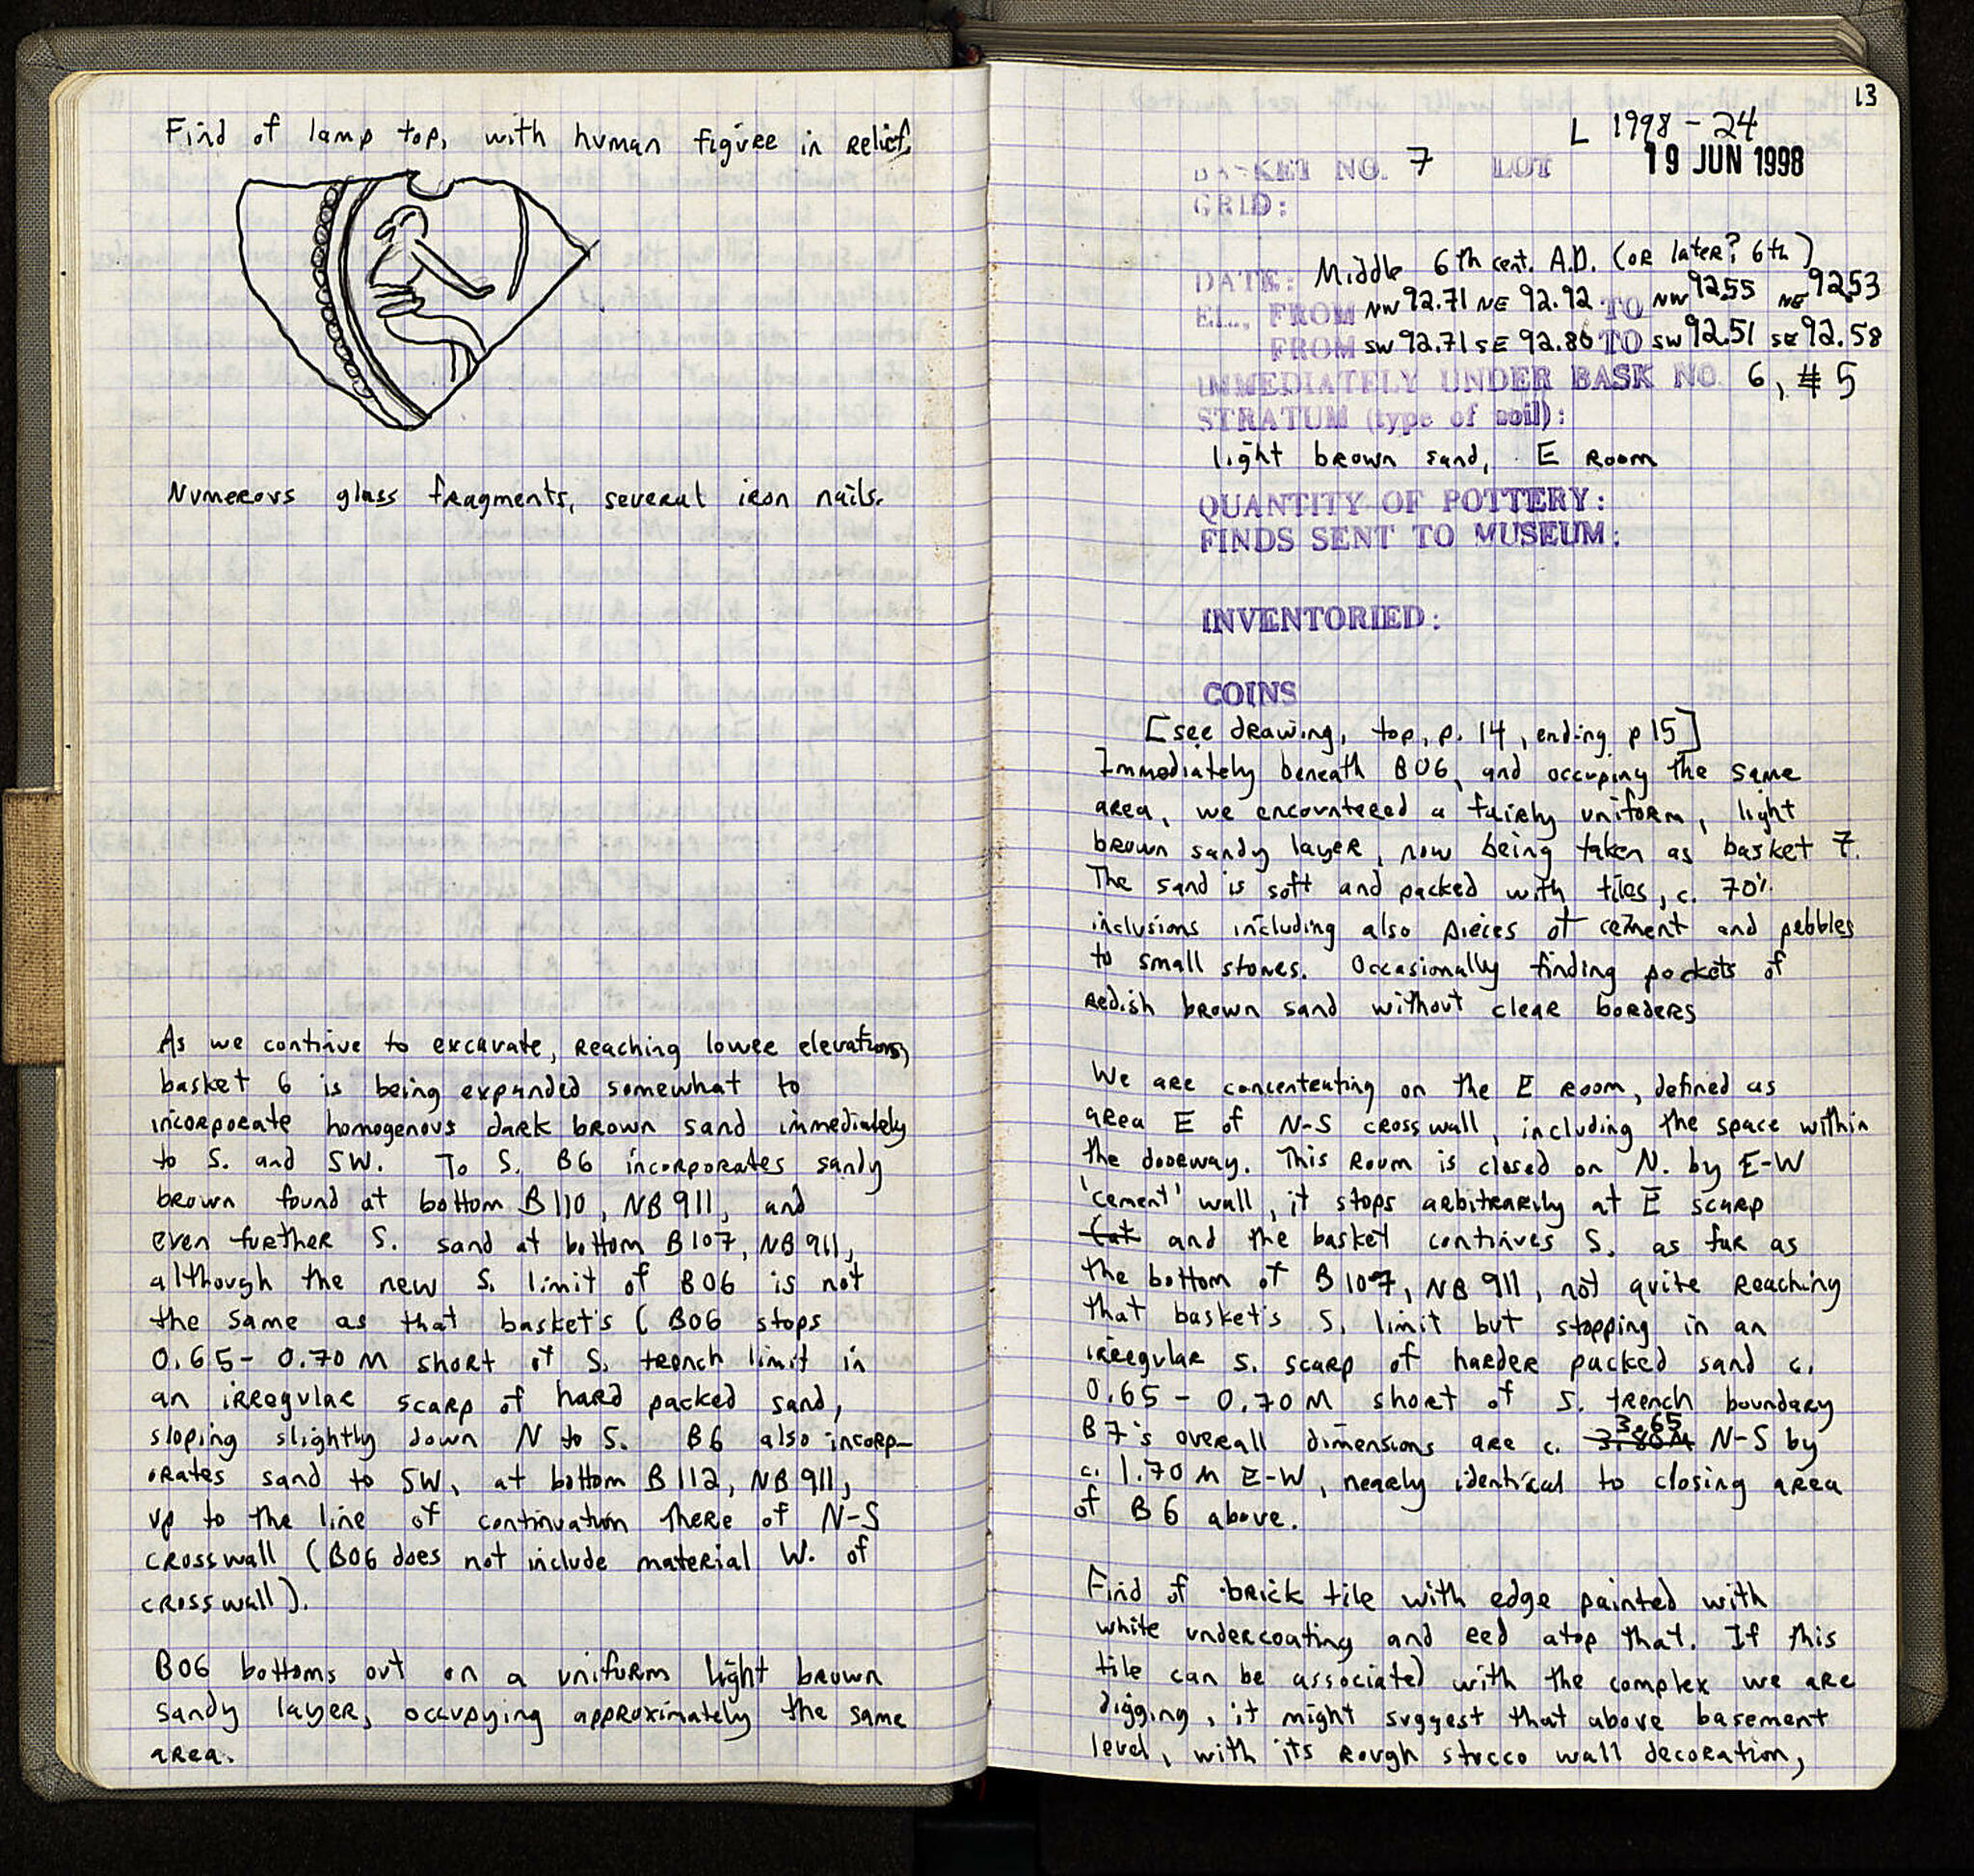 Find of lamp top, with human figure in relief.
Numerous glass fragments, several iron nails.
As we continue to excavate, reaching lower elevations,
basket 6 is being expanded somewhat to
incorporate homogenous dark brown sand immediately
to S. and SW. To S. B6 incorporates sandy
brown found at bottom B110, NB 911, and
even further S. sand at bottom B107, NB 911,
although the new S. limit of B06 is not
the same as that basket's (B06 stops
0.65 - 0.70 M short of S. trench limit in
an irregular scarp of hard packed sand,
sloping slightly down N to S. B6 also incorp-
orates sand to SW, at bottom B112, NB 911,
up to the line of continuation there of N-S
crosswall (B06 does not include material W. of
crosswall).
B06 bottoms out on a uniform light brown
sandy layer, occupying approximately the same
area.
13
L 1998 - 24
BASKET NO. 7 LOT 19 JUN 1998
GRID:
DATE: Middle 6th cent. A.D. (or later? 6th)
EL., FROM NW 92.71 NE 92.92 TO NW 92.55 NE 92.53
FROM SW 92.71 SE 92.86 TO SW 92.51 SE 92.58
IMMEDIATELY UNDER BASK NO. 6, #5
STRATUM (type of soil):
light brown sand, E Room
QUANTITY OF POTTERY:
FINDS SENT TO MUSEUM:
INVENTORIED:
COINS
[see drawing, top, p. 14, ending p 15]
Immediately beneath B06, and occuping the same
area, we encountered a fairly uniform, light
brown sandy layer, now being taken as basket 7.
The sand is soft and packed with tiles, c. 70%
inclusions including also pieces of cement and pebbles
to small stones. Occasionally finding pockets of
redish brown sand without clear borders
We are concentrating on the E room, defined as
area E of N-S crosswall, including the space within
the doorway. This room is closed on N. by E-W
'cement' wall, it stops arbitrarily at E scarp
(at and the basket continues S. as far as
the bottom of B107, NB 911, not quite reaching
that basket's S. limit but stopping in an
irregular S. scarp of harder packed sand c.
0.65 - 0.70 M short of S. trench boundary
B7's overall dimensions are c. 3.80M 3.65 N-S by
c. 1.70 M E-W, nearly identical to closing area
of B6 above.
Find of brick tile with edge painted with
white undercoating and red atop that. If this
tile can be associated with the complex we are
digging, it might suggest that above basement
level, with its rough stucco wall decoration,